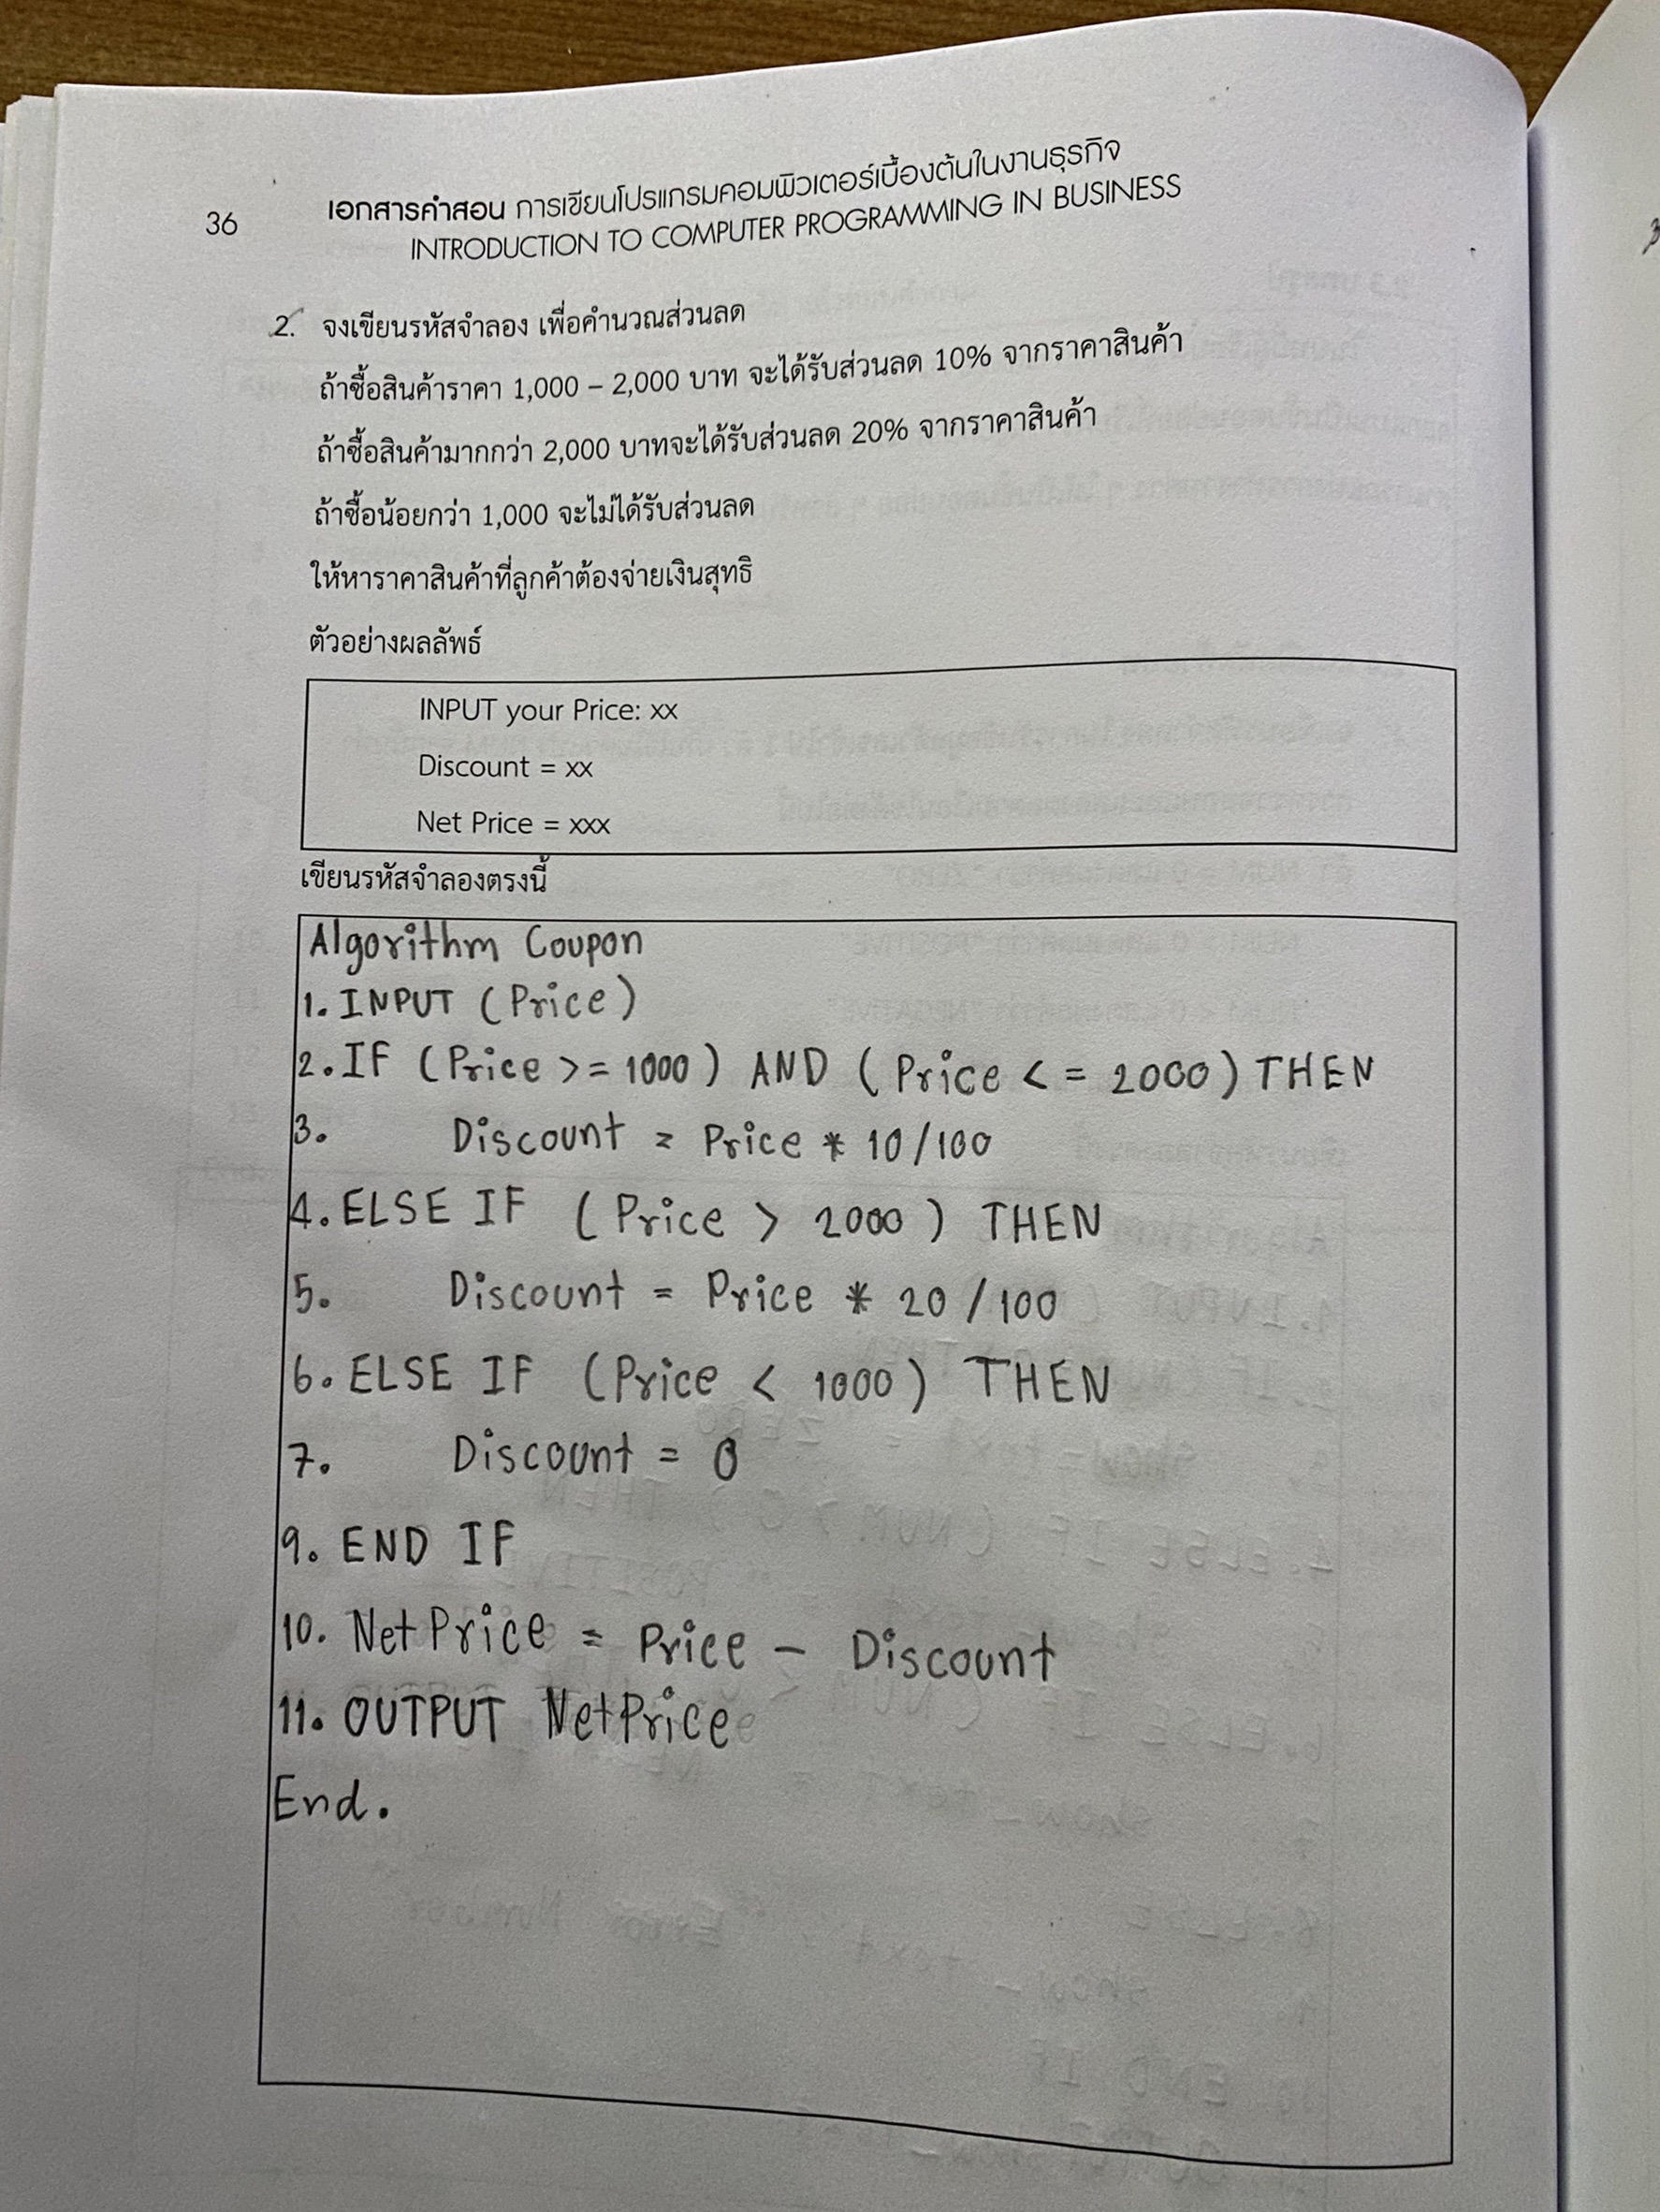 36
เอกสารคำสอน การเขียนโปรแกรมคอมพิวเตอร์เบื้องต้นในงานธุรกิจ
INTRODUCTION TO COMPUTER PROGRAMMING IN BUSINESS
2. จงเขียนรหัสจำลอง เพื่อคำนวณส่วนลด
ถ้าซื้อสินค้าราคา 1,000 – 2,000 บาท จะได้รับส่วนลด 10% จากราคาสินค้า
ถ้าซื้อสินค้ามากกว่า 2,000 บาทจะได้รับส่วนลด 20% จากราคาสินค้า
ถ้าซื้อน้อยกว่า 1,000 จะไม่ได้รับส่วนลด
ให้หาราคาสินค้าที่ลูกค้าต้องจ่ายเงินสุทธิ
ตัวอย่างผลลัพธ์
INPUT your Price: xx
Discount = xx
Net Price = xxx
เขียนรหัสจำลองตรงนี้
Algorithm Coupon
1. INPUT (Price)
2. IF (Price >= 1000) AND (Price <= 2000) THEN
3. Discount = Price * 10/100
4. ELSE IF (Price > 2000) THEN
5. Discount = Price * 20/100
6. ELSE IF (Price < 1000) THEN
7. Discount = 0
9. END IF
10. NetPrice = Price - Discount
11. OUTPUT NetPrice
End.